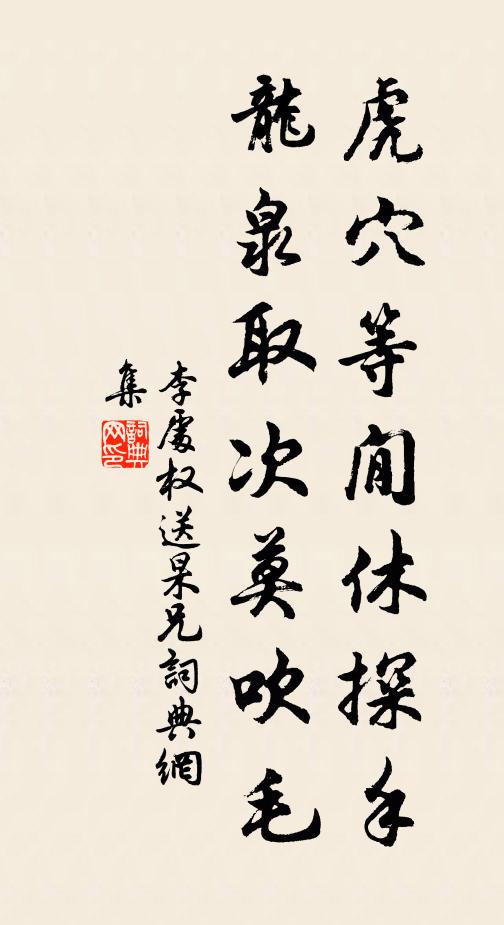 虎穴等閒休探手
龍泉取次莫吹毛
李處权送杲兄詞典網
集
詞典
网印